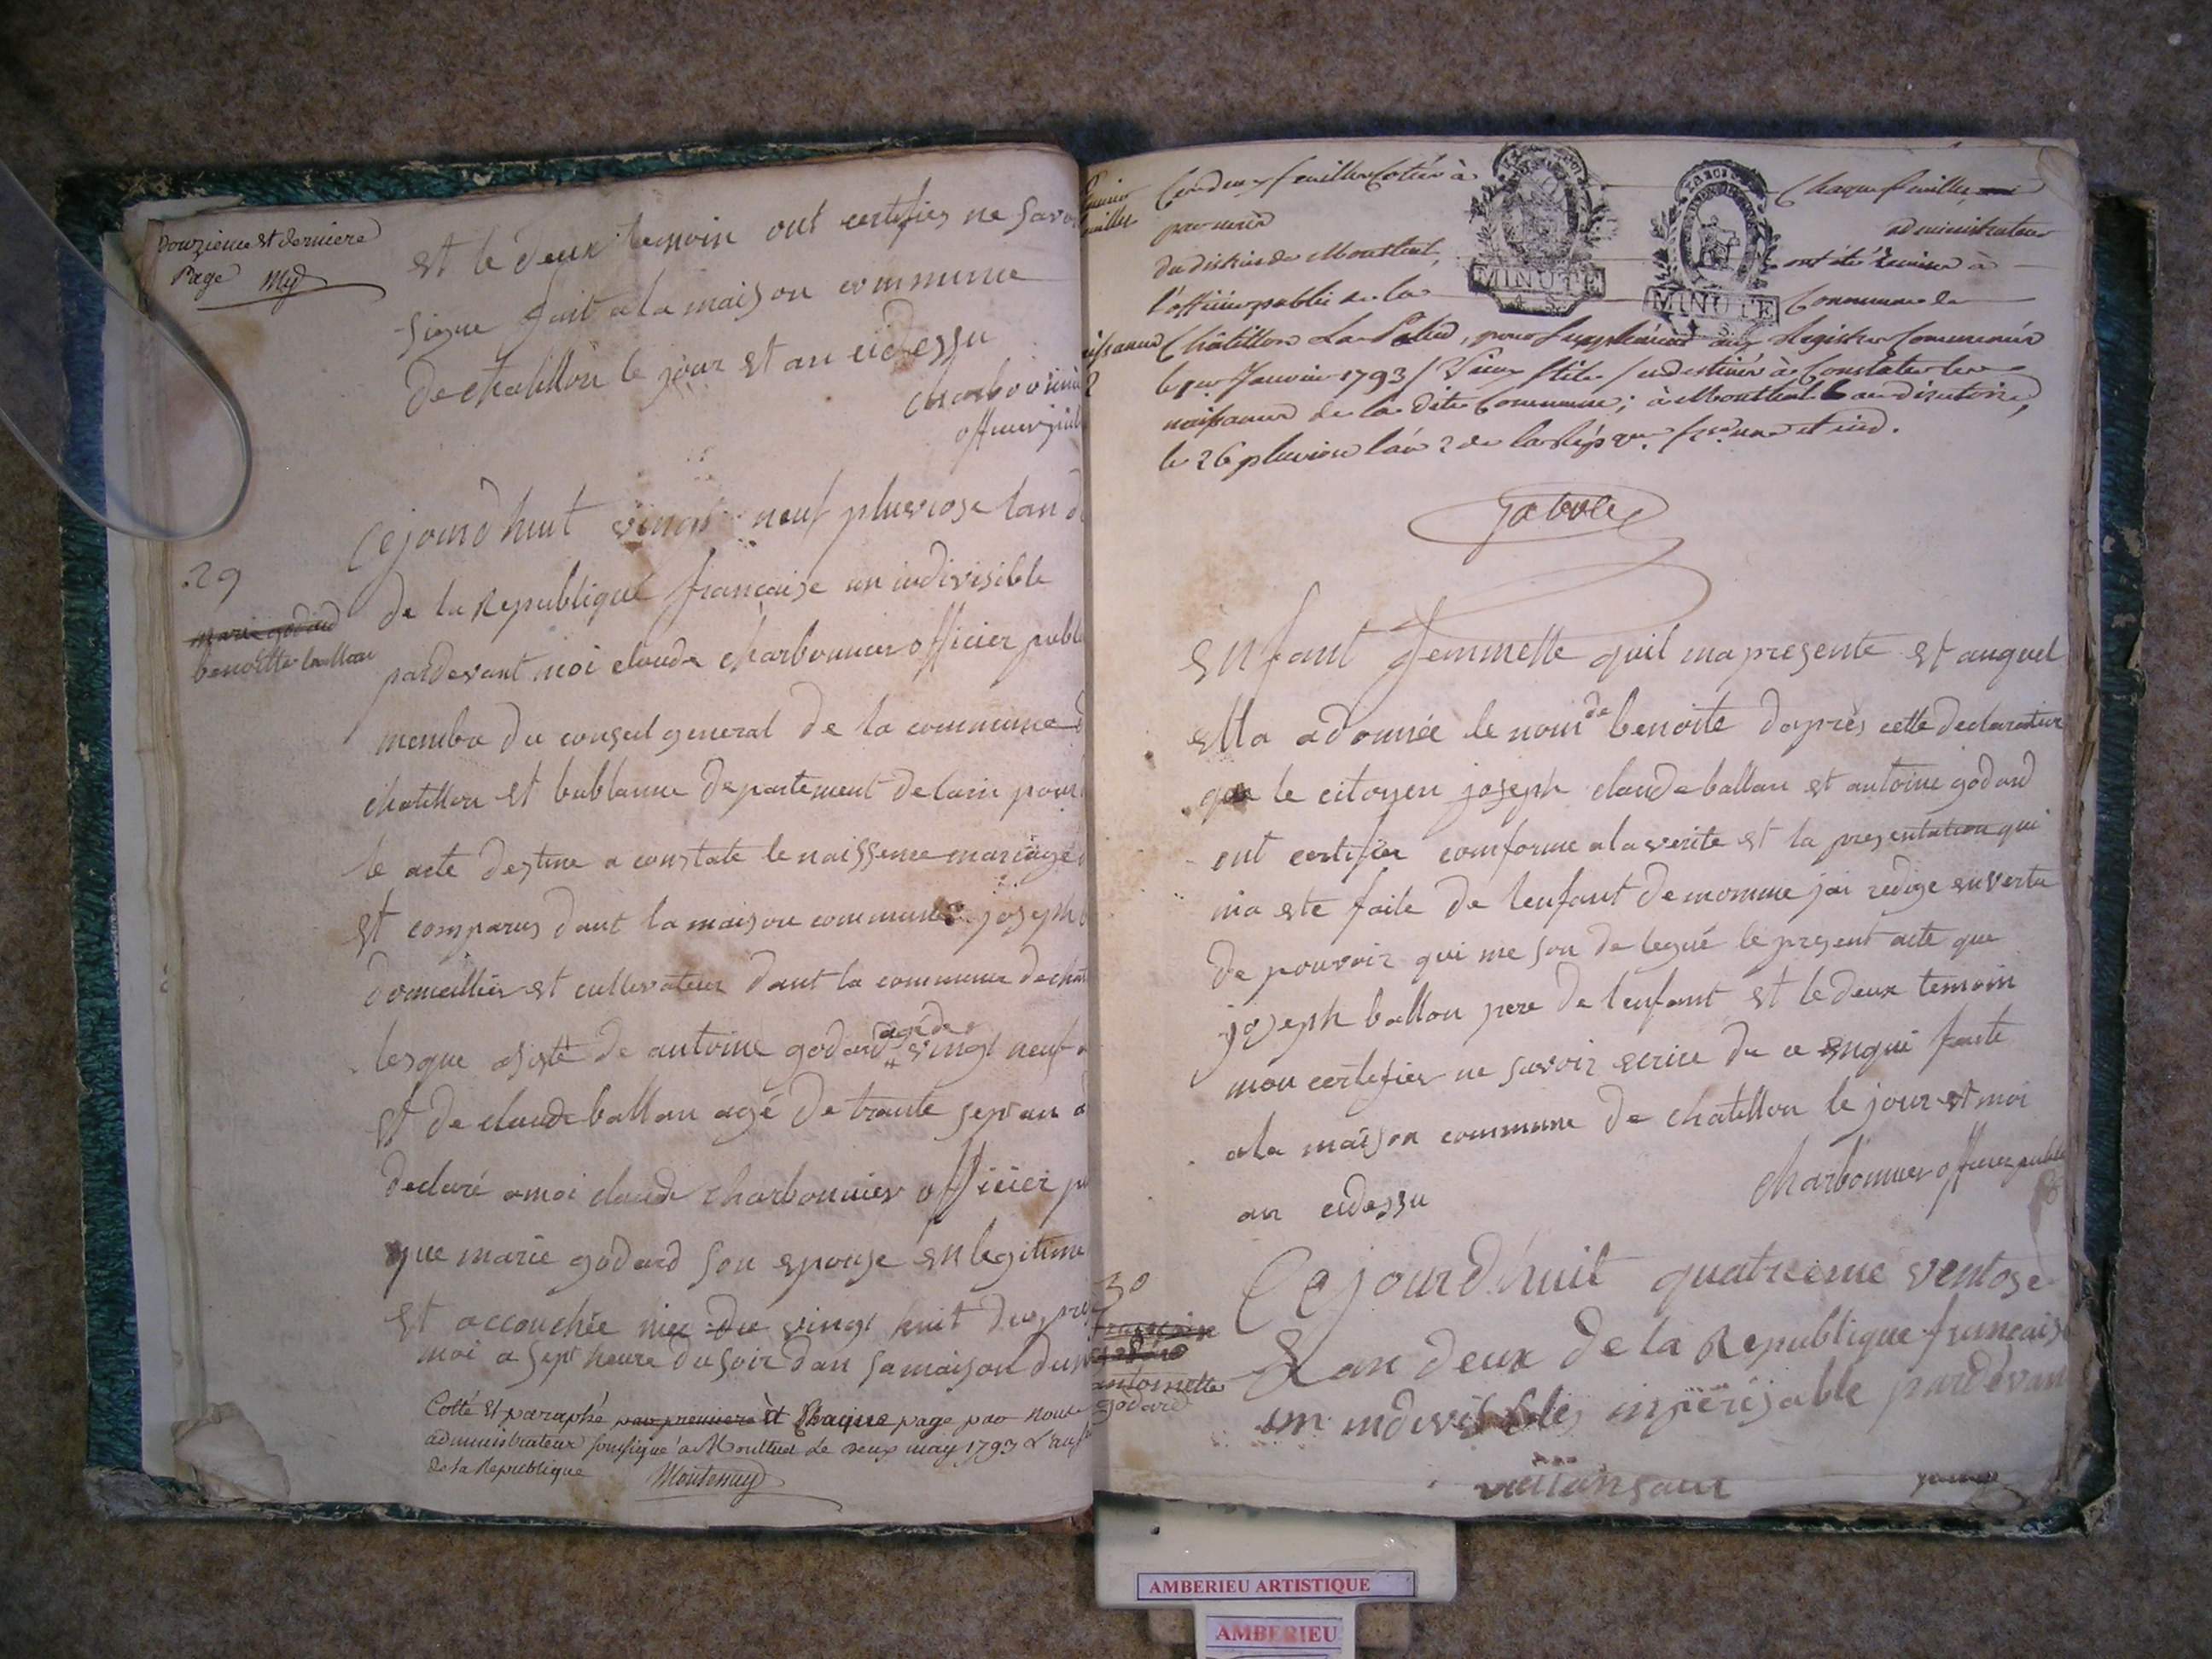 Douzieme et derniere
Page Myd
est le deux temoin ont certifies ne savo
signe fait ala maison commune
de chatillon le jour et an cidessu
charbonnie
officier publ
29
marie godard
benoitte ballan
Cejourd huit vingt neuf pluviose lan d
de la Republique francaise un indivisible
pardevant moi claude charbonnier officier publ
membre du conseil general de la commune d
chatillon et bublanne departement de lain pour
le acte destine a constate le naissence mariage
est comparus dant la maison commune joseph b
domicillier et cultivateur dant la commune de chat
lesque asisté de antoine godard agé de vingt neuf a
et de claude ballan agé de trante sept an a
declaré a moi claude charbonnier officier pu
que marie godard son epouse en legitime
est accouchée hier du vingt huit du pre
moi a sept heure du soir dan sa maison du
Cotté et paraphé par premiere et Chaque page par nous
administrateur soussigné a Montluel Le deux may 1793 L'an
de la Republique
Montenuy
Premier
feuillet
Ces deux feuilles Cotées à Chaque feuille
par nous administrateur
du district de Montluel, ont été remises à
l'officier public de la Commune de
Châtillon La Palud, pour Supplément aux Registres Commencés
le 1er Janvier 1793 (Vieux stile) destinés à Constater les
naissances de la dite Commune; à Montluel au directoire,
le 26 pluviose l'an 2 de la Rép.
enfant femmelle quil ma presente et auquel
ella a donnée le nom de benoite dapres cette declaration
que le citoyen joseph claude ballan et antoine godard
ont certifier comforme ala verite et la presentation qui
ma ete faite de lenfant denomme jai redige en vertu
de pouvoir qui me son delegué le present acte que
joseph ballan pere de lenfant et le deux temoin
mon certifier ne savoir ecrire de ce enqui faite
ala maison commune de chatillon le jour et moi
an cidessu
charbonnier officier public
30
antoinette
godard
Cejourd'huit quatrieme ventose
Lan deux de la Republique francaise
un indivisible imperisable pardevan